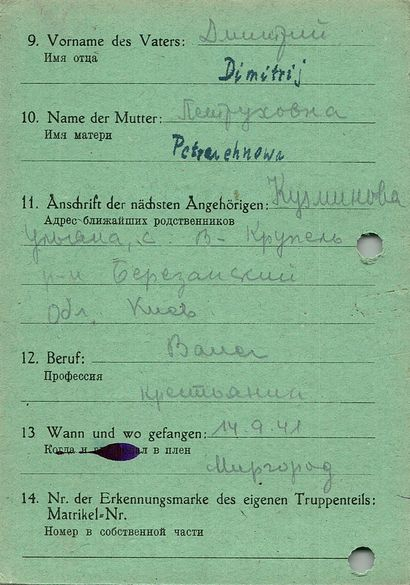 9. Vorname des Vaters: Дмитрий
Имя отца
Dimitrij
10. Name der Mutter: Петруховна
Имя матери
Petruchnowa
11. Anschrift der nächsten Angehörigen: Кузминова
Адрес ближайших родственников
Ульяна, с. В- Крупель
р-н Березанский
Обл. Киев
12. Beruf: Bauer
Профессия
крестьянин
13 Wann und wo gefangen: 14.9.41
Когда и в плен
Миргород
14. Nr. der Erkennungsmarke des eigenen Truppenteils:
Matrikel=Nr.
Номер в собственной части